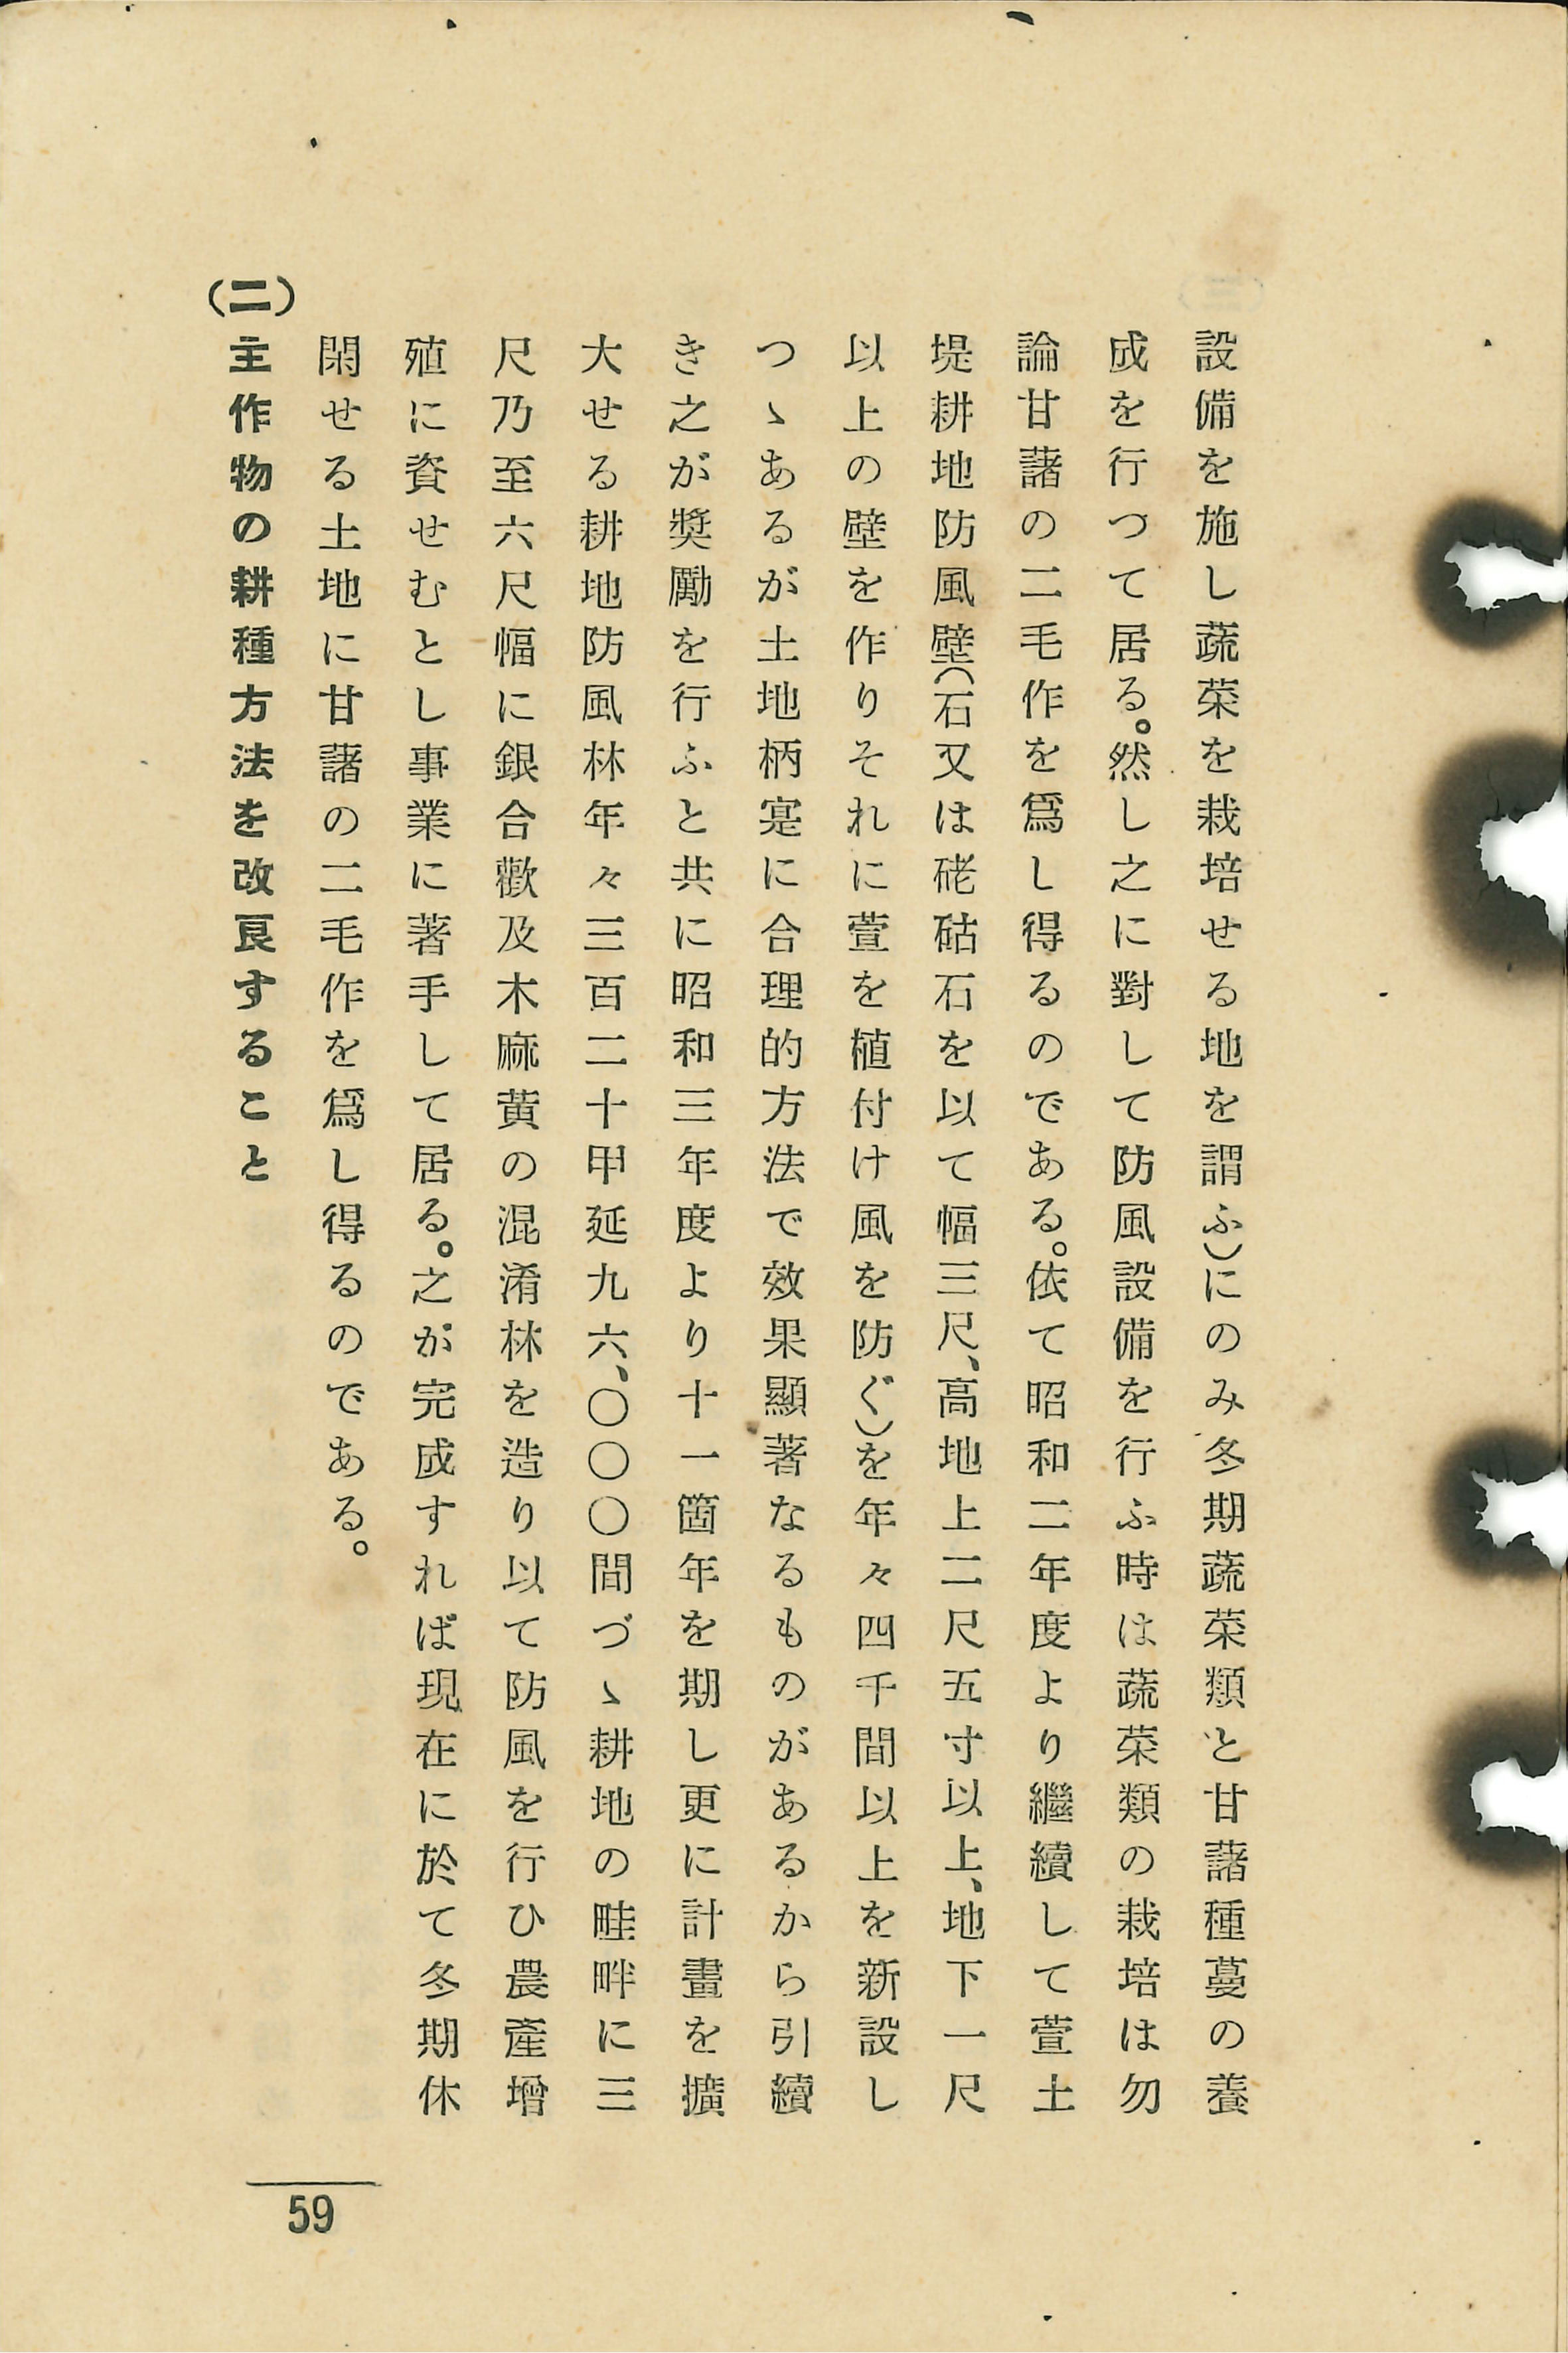 設備を施し蔬菜を栽培せる地を謂ふ)にのみ冬期蔬菜類と甘藷種蔓の養
成を行つて居る。然し之に對して防風設備を行ふ時は蔬菜類の栽培は勿
論甘藷の二毛作を爲し得るのである。依て昭和二年度より繼續して萱土
堤耕地防風壁(石又は硓𥑮石を以て幅三尺、高地上二尺五寸以上、地下一尺
以上の壁を作りそれに萱を植付け風を防ぐ)を年々四千間以上を新設し
つゝあるが土地柄寔に合理的方法で效果顯著なるものがあるから引續
き之が奬勵を行ふと共に昭和三年度より十一箇年を期し更に計畫を擴
大せる耕地防風林年々三百二十甲延九六、〇〇〇間づゝ耕地の畦畔に三
尺乃至六尺幅に銀合歡及木麻黄の混淆林を造り以て防風を行ひ農產增
殖に資せむとし事業に著手して居る。之が完成すれば現在に於て冬期休
閑せる土地に甘藷の二毛作を爲し得るのである。
(二)主作物の耕種方法を改良すること
59